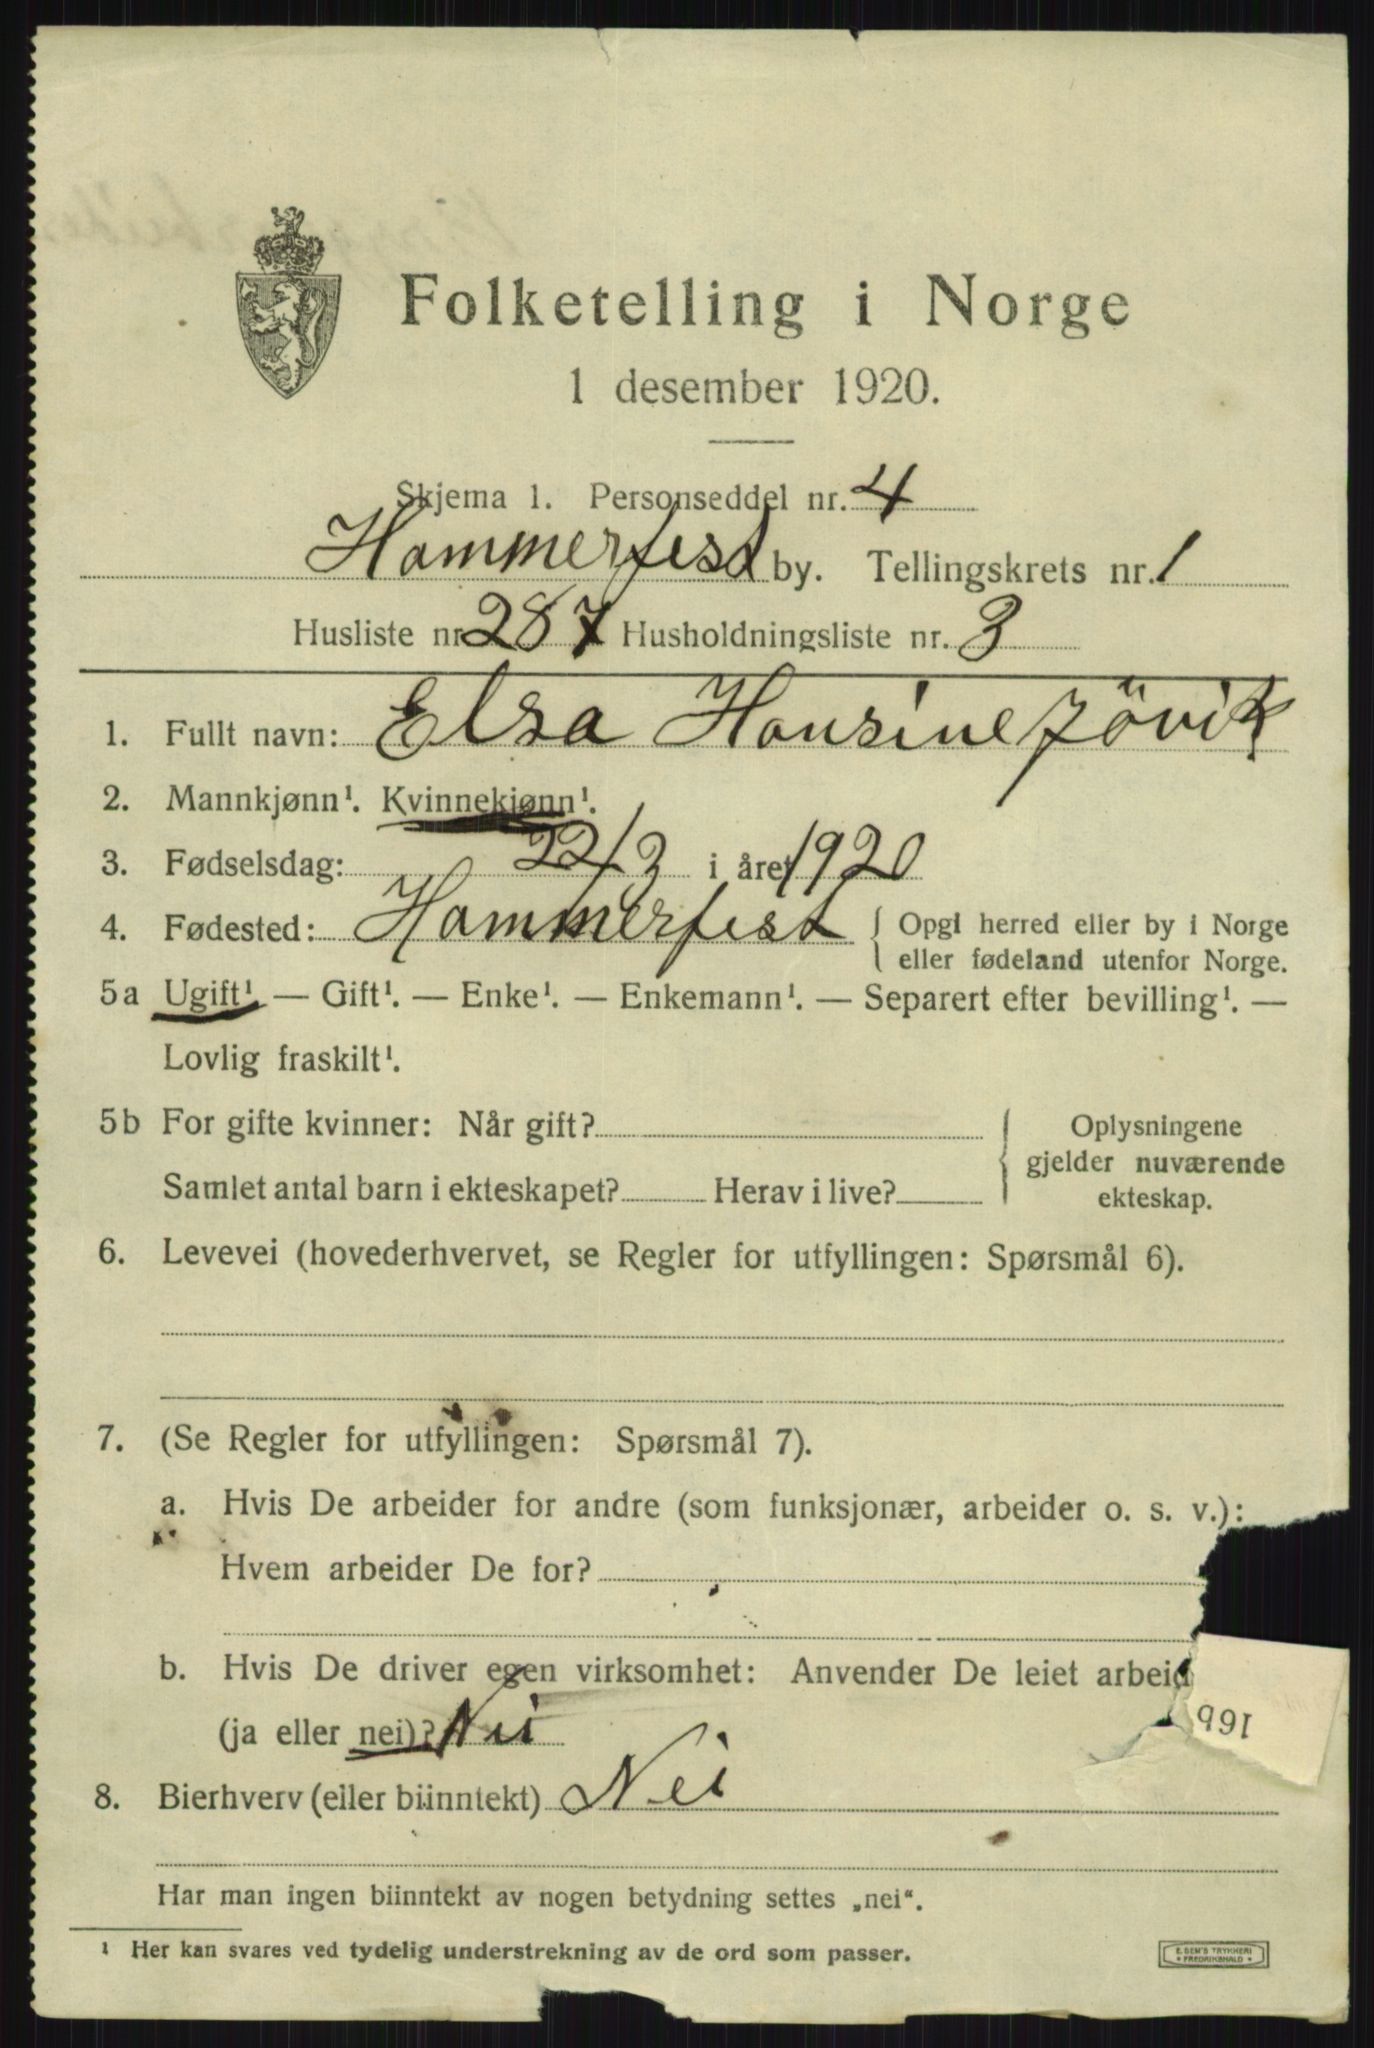 Folketelling i Norge
1 desember 1920.
Skjema 1. Personseddel nr. 4
Hammerfest by. Tellingskrets nr. 1
Husliste nr. 287 Husholdningsliste nr. 3
1. Fullt navn: Elsa Hansine Jövik
2. Mannkjønn¹. Kvinnekjønn¹.
3. Fødselsdag: 22/3 i året 1920
4. Fødested: Hammerfest { Opgi herred eller by i Norge
eller fødeland utenfor Norge.
5a Ugift¹ — Gift¹. — Enke¹. — Enkemann¹. — Separert efter bevilling¹. —
Lovlig fraskilt¹.
5b For gifte kvinner: Når gift?
Samlet antal barn i ekteskapet? Herav i live?
Oplysningene
gjelder nuværende
ekteskap.
6. Levevei (hovederhvervet, se Regler for utfyllingen: Spørsmål 6).
7. (Se Regler for utfyllingen: Spørsmål 7).
a. Hvis De arbeider for andre (som funksjonær, arbeider o. s. v.):
Hvem arbeider De for?
b. Hvis De driver egen virksomhet: Anvender De leiet arbeid
(ja eller nei)? Nei
16b
8. Bierhverv (eller biinntekt) Nei
Har man ingen biinntekt av nogen betydning settes „nei“.
¹ Her kan svares ved tydelig understrekning av de ord som passer.
E. SEM'S TRYKKERI
FREDRIKSHALD